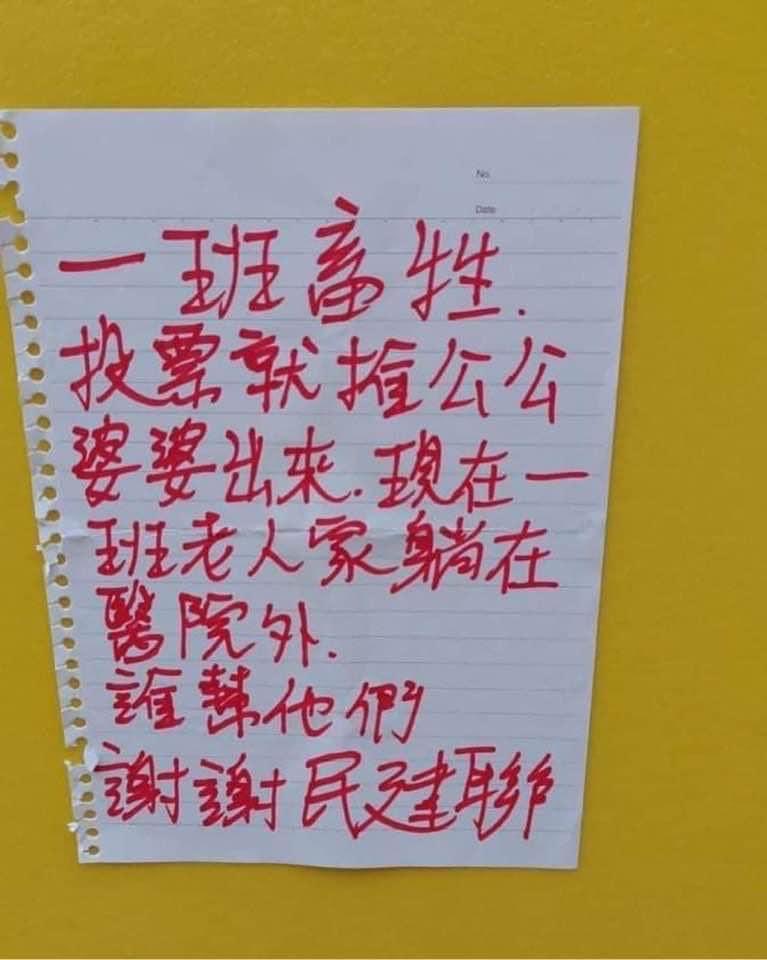 No.
Date
一班畜牲.
投票就推公公
婆婆出來.現在一
班老人家躺在
醫院外.
誰幫他們
謝謝民建聯